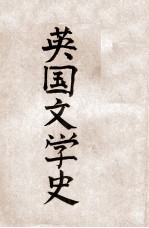 英国文学史